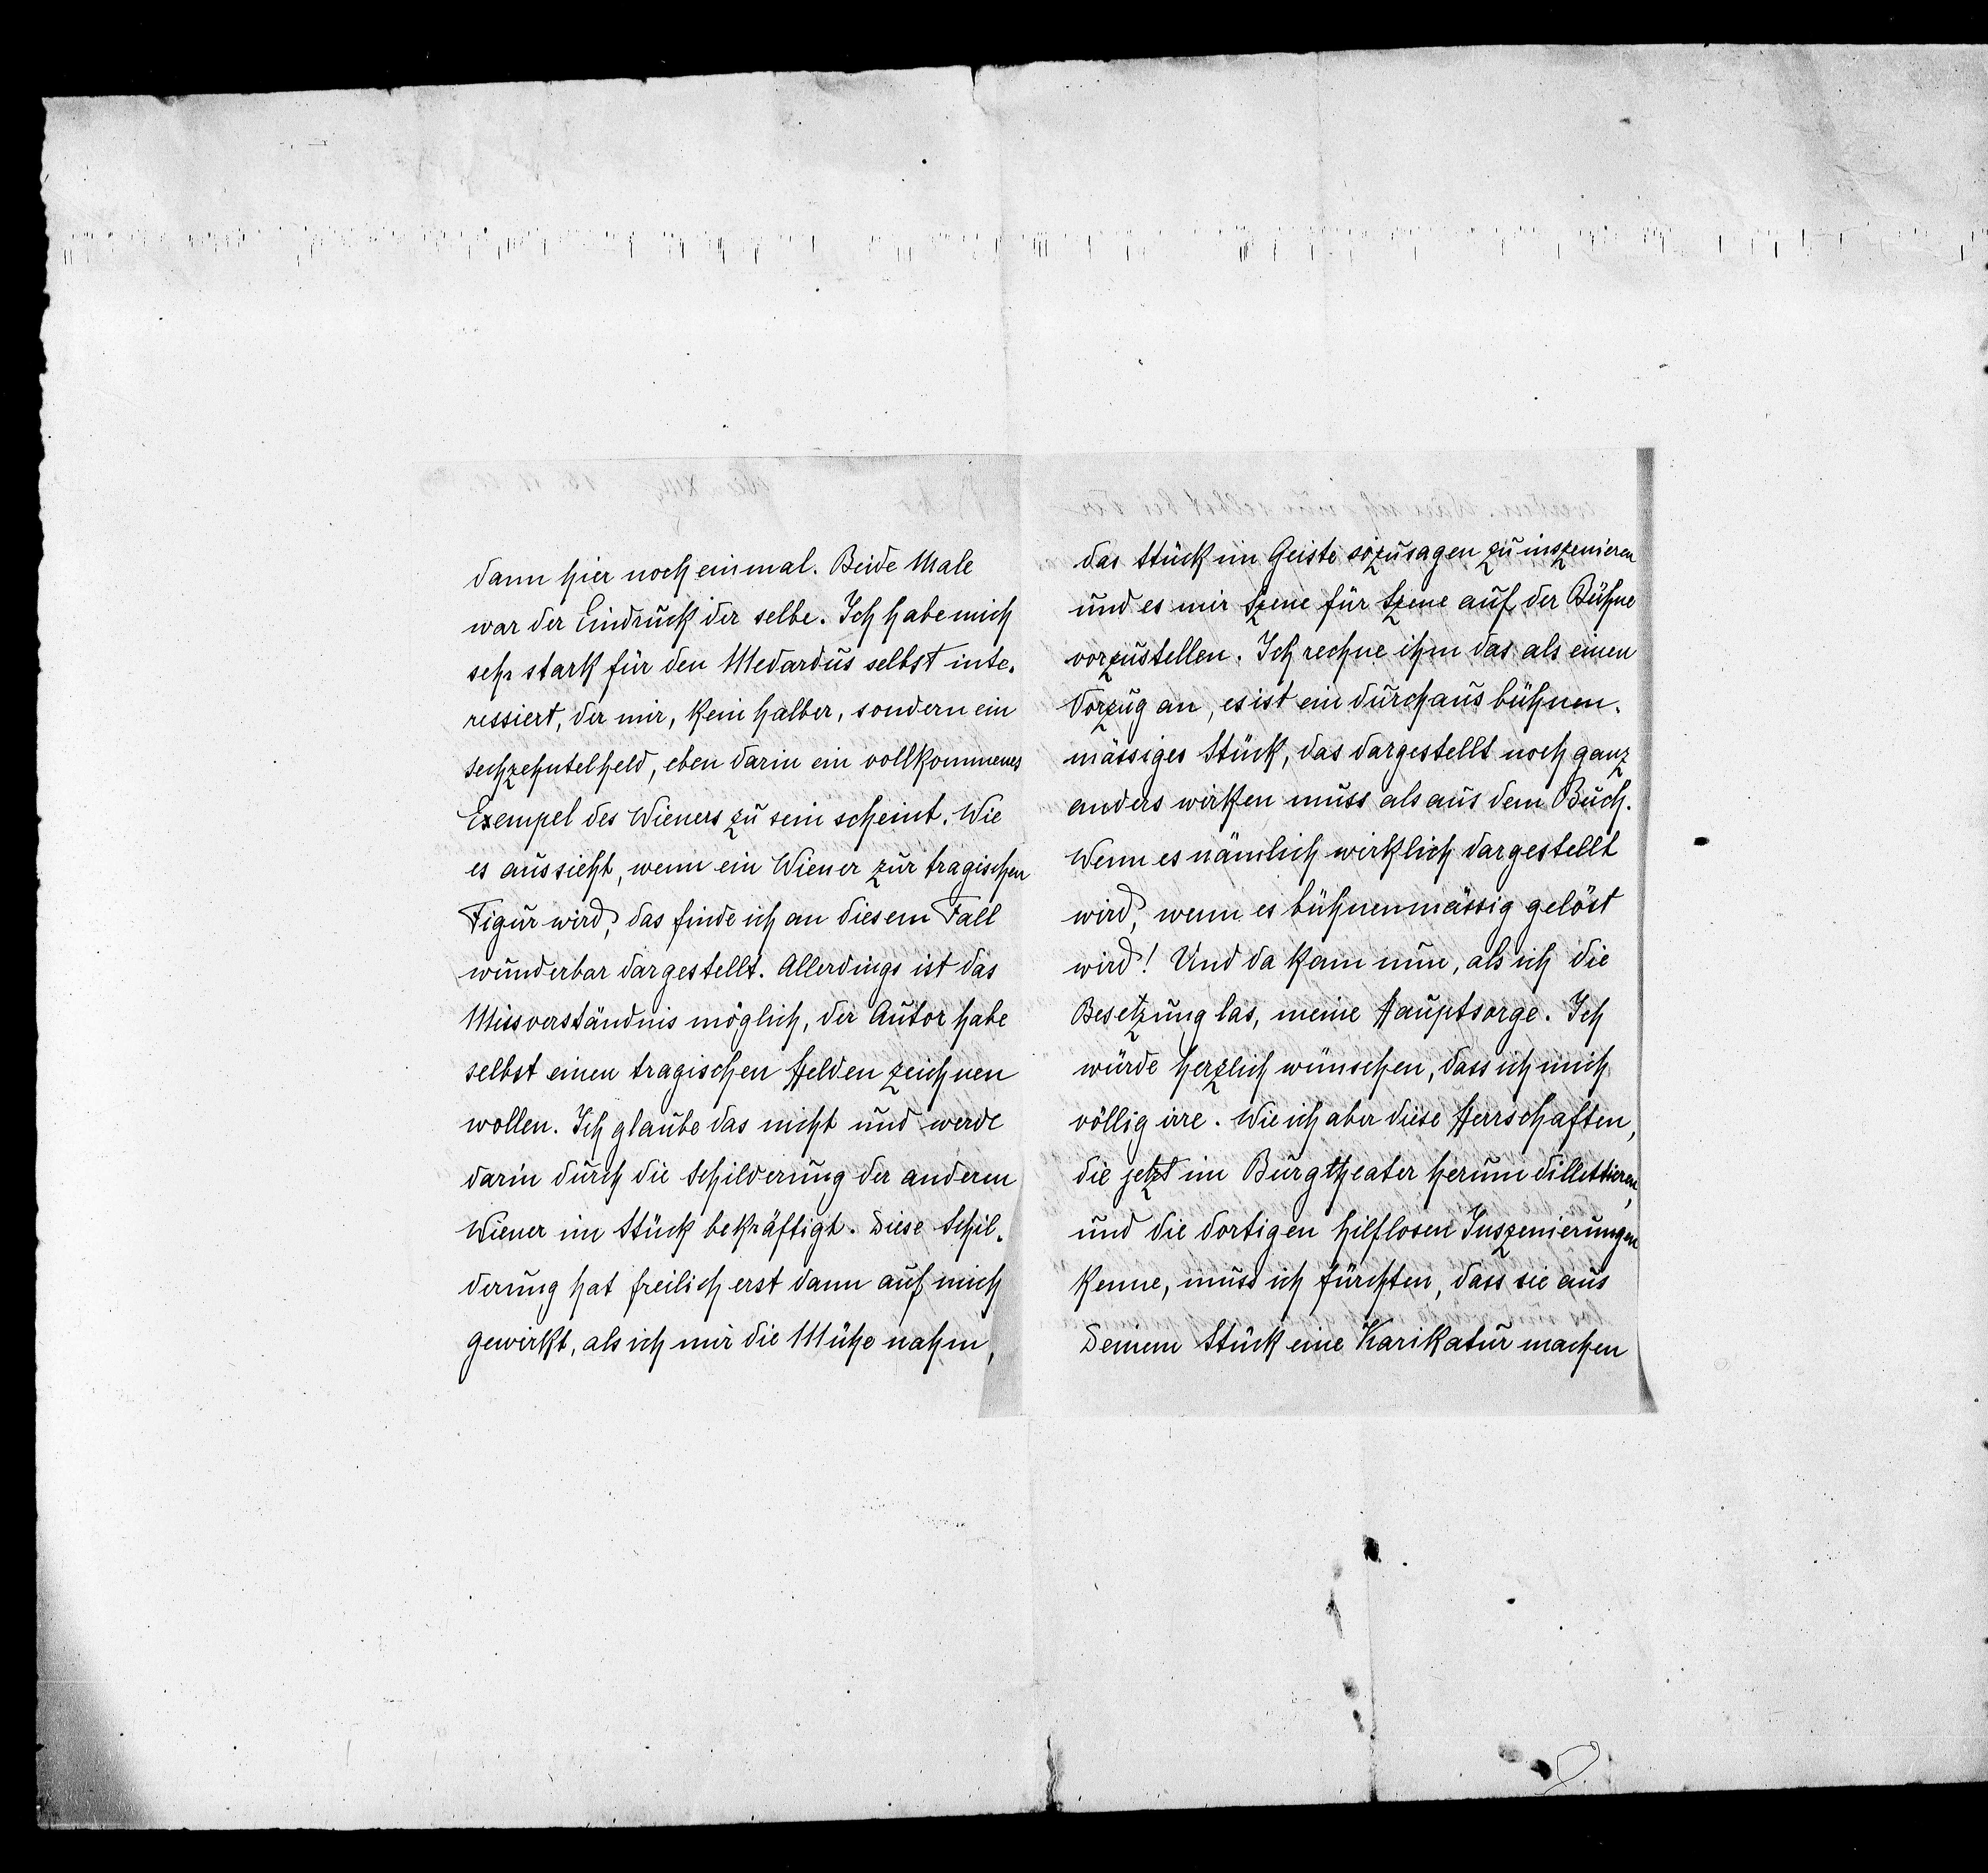 dann hier noch einmal. Beide Male
war der Eindruck der selbe. Ich habe mich
sehr stark für den Medardus selbst inte-
ressiert, der mir, kein halber, sondern ein
Sechzehntelheld, eben darin ein vollkommenes
Exempel des Wieners zu sein scheint. Wie
es aussieht, wenn ein Wiener zur tragischen
Figur wird, das finde ich an diesem Fall
wunderbar dargestellt. Allerdings ist das
Missverständnis möglich, der Autor habe
selbst einen tragischen Helden zeichnen
wollen. Ich glaube das nicht und werde
darin durch die Schilderung der anderen
Wiener im Stück bekräftigt. Diese Schil-
derung hat freilich erst dann auf mich
gewirkt, als ich mir die Mühe nahm,
das Stück im Geiste sozusagen zu inszenieren
und es mir Szene für Szene auf der Bühne
vorzustellen. Ich rechne ihm das als einen
Vorzug an, es ist ein durchaus bühnen-
mässiges Stück, das dargestellt noch ganz
anders wirken muss als aus dem Buch.
Wenn es nämlich wirklich dargestellt
wird, wenn es bühnenmässig gelöst
wird! Und da kam nun, als ich die
Besetzung las, meine Hauptsorge. Ich
würde herzlich wünschen, dass ich mich
völlig irre. Wie ich aber diese Herrschaften,
die jetzt im Burgtheater herum dillettieren,
und die dortigen hilflosen Inszenierungen
kenne, muss ich fürchten, dass sie aus
Deinem Stück eine Karikatur machen